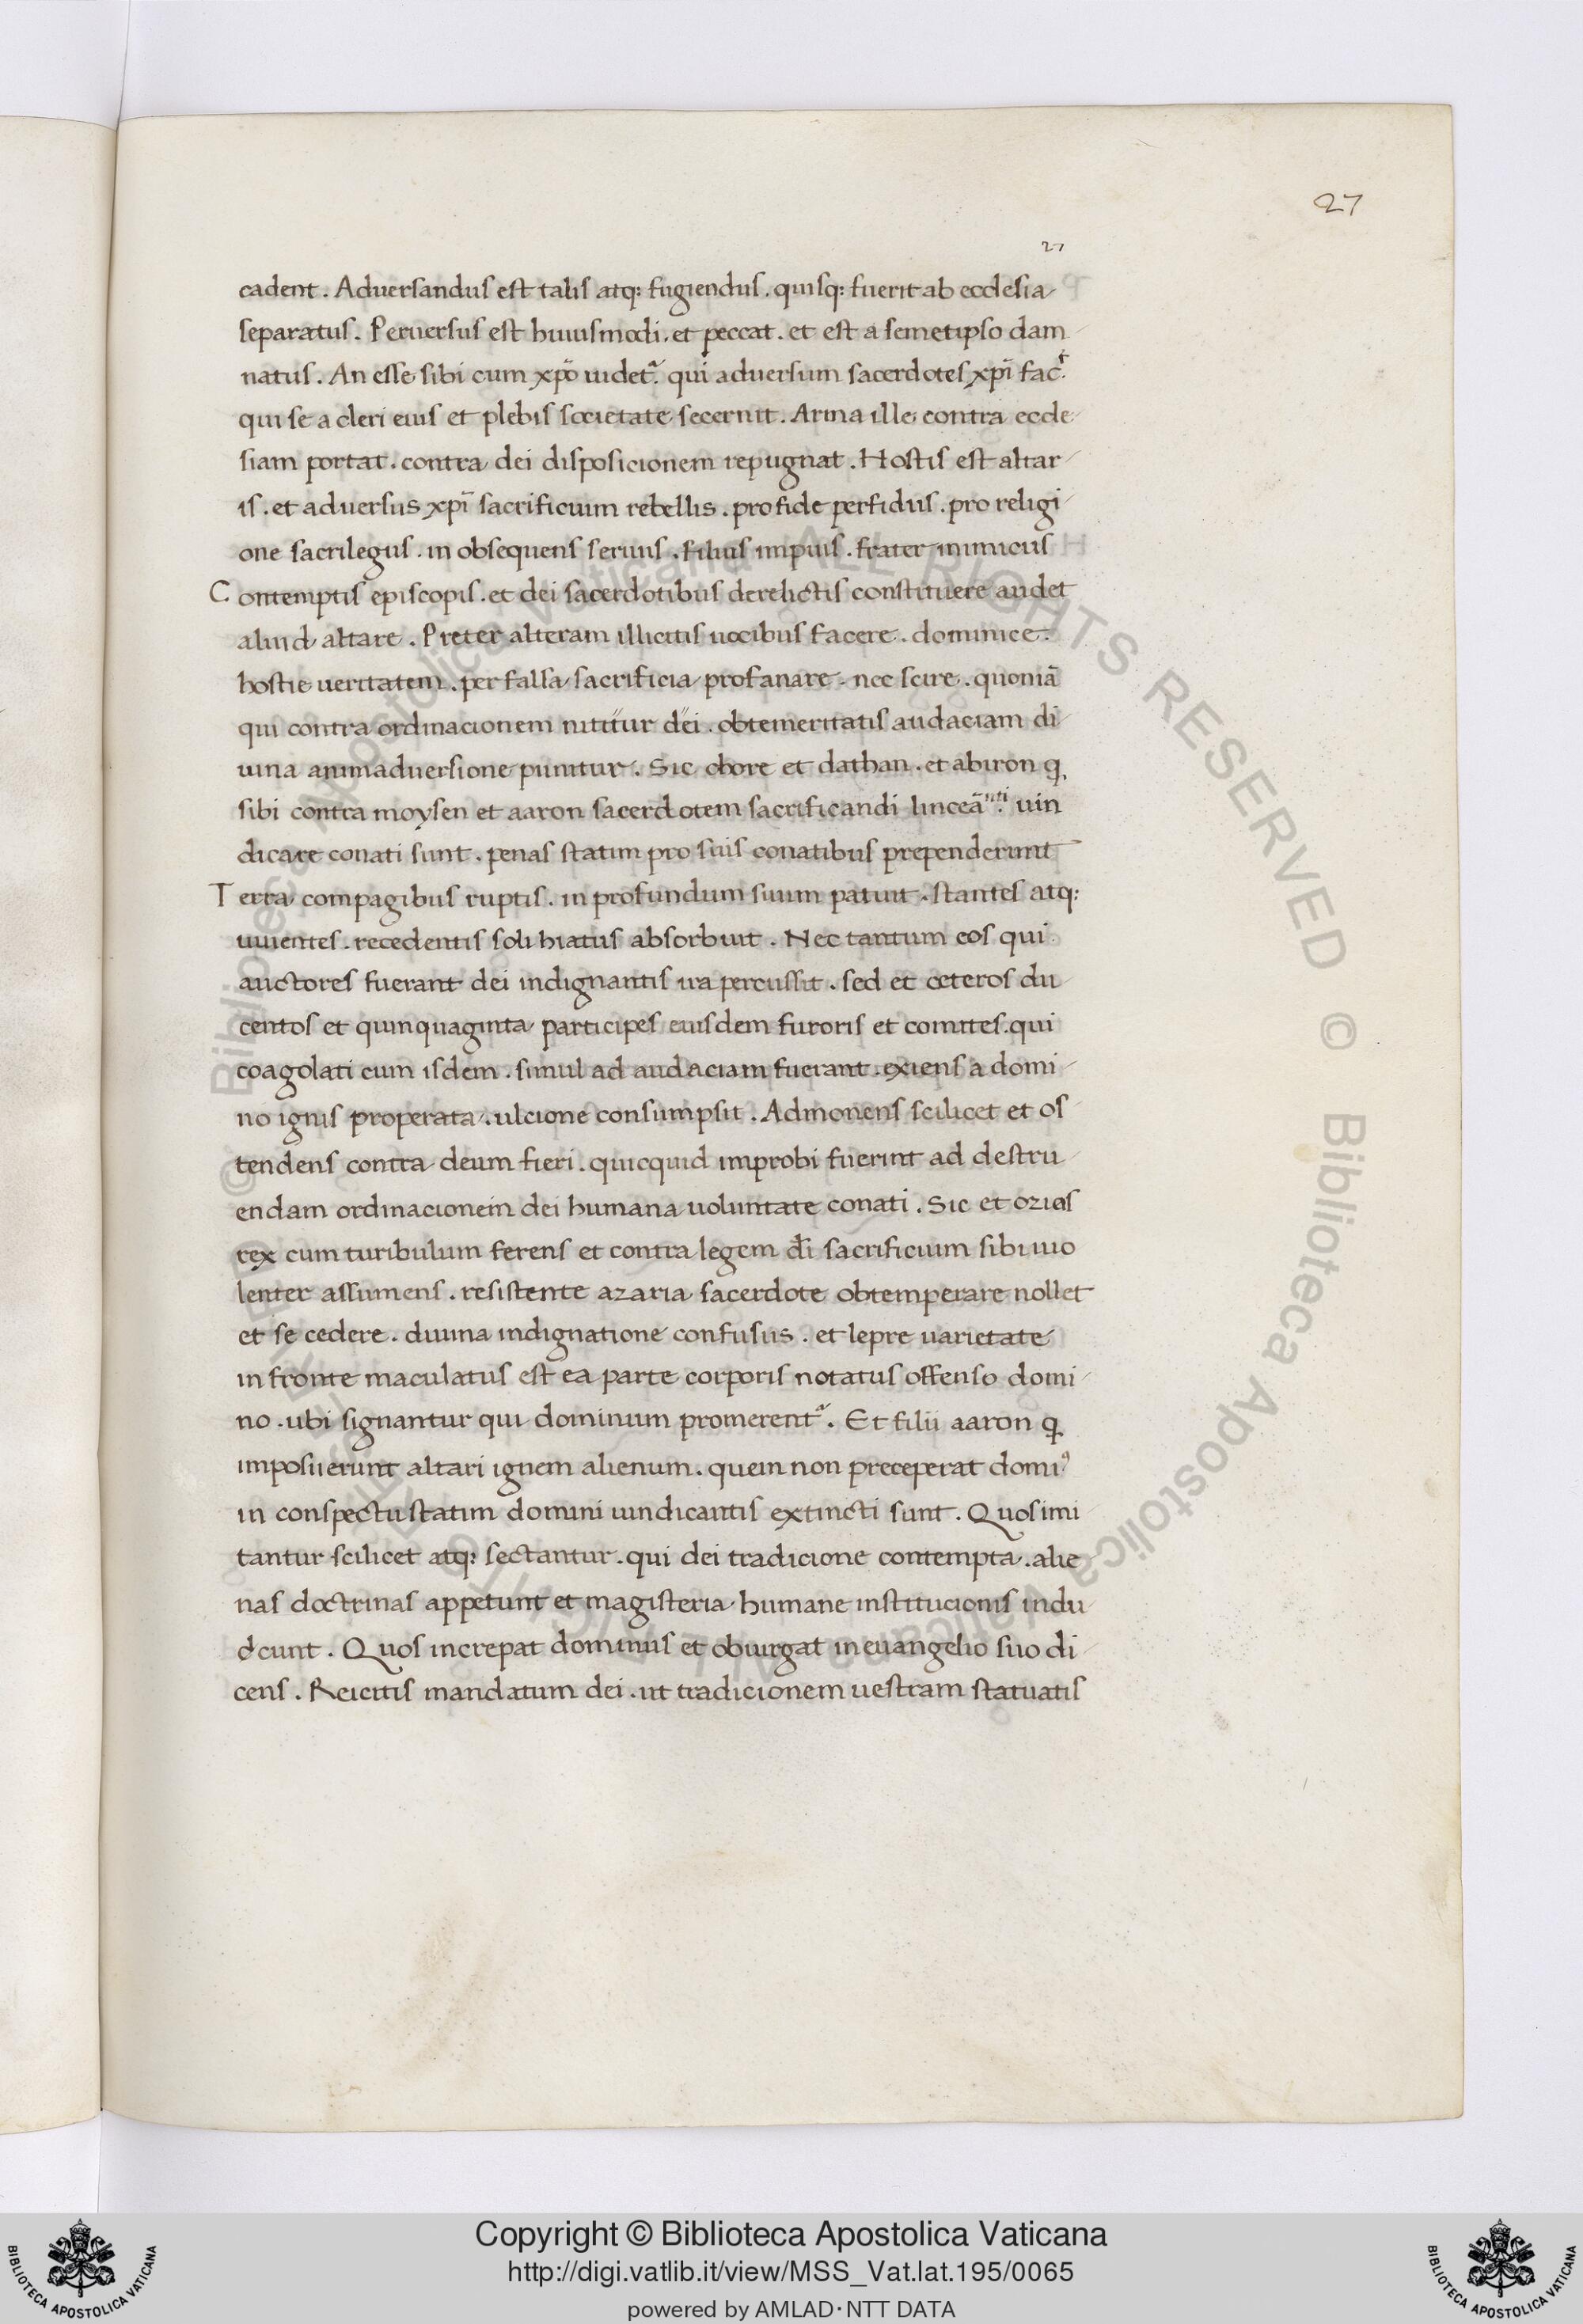 27
27
cadent. Aduersandus est talis atq: fugiendus. quisq: fuerit ab ecclesia
separatus. Peruersus est huiusmodi. et peccat. et est a semetipso dam
natus. An esse sibi cum xp̄o uidet͛. qui aduersum sacerdotes xp̄i fac̉.
qui se a cleri eius et plebis societate secernit. Arma ille contra eccle
siam portat. contra dei disposicionem repugnat. Hostis est altar
is. et aduersus xp̄i sacrificium rebellis. pro fide perfidus. pro religi
one sacrilegus. in obsequens seruus. filius impius. frater inimicus
Contemptis episcopis. et dei sacerdotibus derelictis constituere audet
aliud altare. Preter alteram illicitis uocibus facere. dominice.
hostie ueritatem. per falsa sacrificia profanare. nec scire. quoniā
qui contra ordinacionem nititur dei. obtemeritatis audaciam di
uina animaduersione punitur. Sic chore et dathan. et abiron q
sibi contra moysen et aaron sacerdotem sacrificandi linceā nti uin
dicare conati sunt. penas statim pro suis conatibus prependerunt
Terra compagibus ruptis. in profundum suum patuit. stantes atq:
uiuentes. recedentis soli hiatus absorbuit. Nec tantum eos qui
auctores fuerant dei indignantis ira percussit. sed et ceteros du
centos et quinquaginta participes eiusdem furoris et comites. qui
coagolati cum isdem. simul ad audaciam fuerant. exiens a domi
no ignis properata. ulcione consumpsit. Admonens scilicet et os
tendens contra deum fieri. quicquid improbi fuerint ad destru
endam ordinacionem dei humana uoluntate conati. Sic et ozias
rex cum turibulum ferens et contra legem d̄i sacrificium sibi uio
lenter assumens. resistente azaria sacerdote obtemperare nollet
et se cedere. diuina indignatione confusus. et lepre uarietate
in fronte maculatus est ea parte corporis notatus offenso domi
no. ubi signantur qui dominum promerent͛. Et filii aaron q
imposuerunt altari ignem alienum. quem non preceperat domi⁹
in conspectu statim domini uindicantis extincti sunt. Quos imi
tantur scilicet atq: sectantur. qui dei tradicione contempta. alie
nas doctrinas appetunt et magisteria humane institucionis indu
cunt. Quos increpat dominus et obiurgat in euangelio suo di
cens. Reicitis mandatum dei. ut tradicionem uestram statuatis
© Biblioteca Apostolica Vaticana ALL RIGHTS RESERVED © Biblioteca Apostolica Vaticana ALL RIGHTS RESERVED
Copyright © Biblioteca Apostolica Vaticana
http://digi.vatlib.it/view/MSS_Vat.lat.195/0065
powered by AMLAD·NTT DATA
BIBLIOTECA APOSTOLICA VATICANA
BIBLIOTECA APOSTOLICA VATICANA